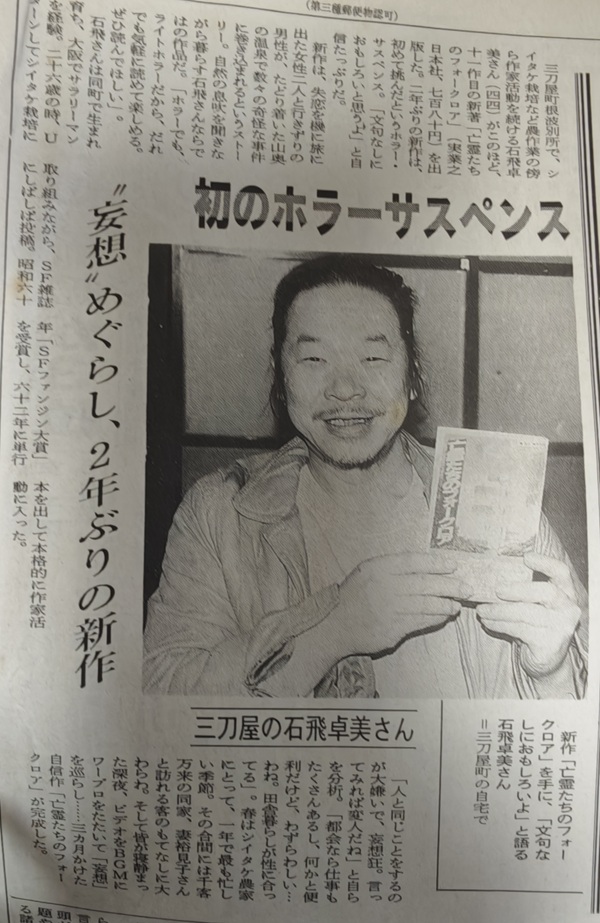 （第三種郵便物認可）
初のホラーサスペンス
〝妄想〟めぐらし、2年ぶりの新作
三刀屋町根波別所で、シ
イタケ栽培など農作業の傍
ら作家活動を続ける石飛卓
美さん（四四）がこのほど、
十一作目の新著「亡霊たち
のフォークロア」（実業之
日本社、七百八十円）を出
版した。二年ぶりの新作は、
初めて挑んだというホラー・
サスペンス。「文句なしに
おもしろいと思うよ」と自
信たっぷりだ。
新作は、失恋を機に旅に
出た女性二人と行きずりの
男性が、たどり着いた山奥
の温泉で数々の奇怪な事件
に巻き込まれるというストー
リー。自然の息吹を聞きな
がら暮らす石飛さんならで
はの作品だ。「ホラーでも、
ライトホラーだから、だれ
でも気軽に読めて楽しめる。
ぜひ読んでほしい」。
石飛さんは同町で生まれ
育ち、大阪でサラリーマン
を経験。二十六歳の時、U
ターンしてシイタケ栽培に
取り組みながら、SF雑誌
にしばしば投稿。昭和六十
年「SFファンジン大賞」
を受賞し、六十二年に単行
本を出して本格的に作家活
動に入った。
亡霊たちのフォークロア
新作「亡霊たちのフォー
クロア」を手に、「文句な
しにおもしろいよ」と語る
石飛卓美さん
＝三刀屋町の自宅で
三刀屋の石飛卓美さん
「人と同じことをするの
が大嫌いで、妄想狂。言っ
てみれば変人だね」と自ら
を分析。「都会なら仕事も
たくさんあるし、何かと便
利だけど、わずらわしい…
わね。田舎暮らしが性に合っ
てる」。春はシイタケ農家
にとって、一年で最も忙し
い季節。その合間には千客
万来の同家、妻裕見子さん
と訪れる客のもてなしに大
わらわ。そして皆が寝静まっ
た深夜、ビデオをBGMに
ワープロをたたいて「妄想」
を巡らし……三カ月かけた
自信作「亡霊たちのフォー
クロア」が完成した。